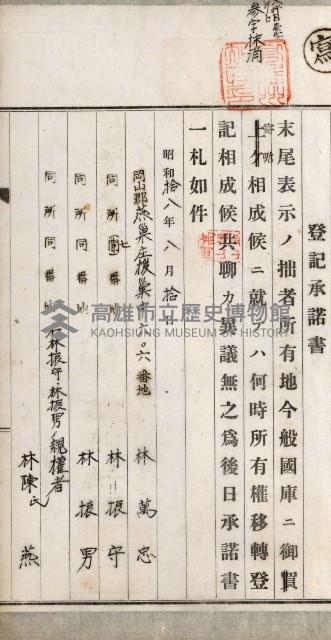 寫
參字抹消
登記承諾書
末尾表示ノ拙者所有地今般國庫ニ御買
寄附
上ケ相成候ニ就テハ何時所有權移轉登
記相成候共聊カ異議無之爲後日承諾書
一札如件
昭和拾八年八月拾日
岡山郡燕巢庄援巢中六〇六番地
林萬忠
同所同番地
林振守
同所同番地
林振男
同所同番地
右林振守、林振男ノ親權者
林陳氏燕
高雄市立歷史博物館
KAOHSIUNG MUSEUM OF HISTORY